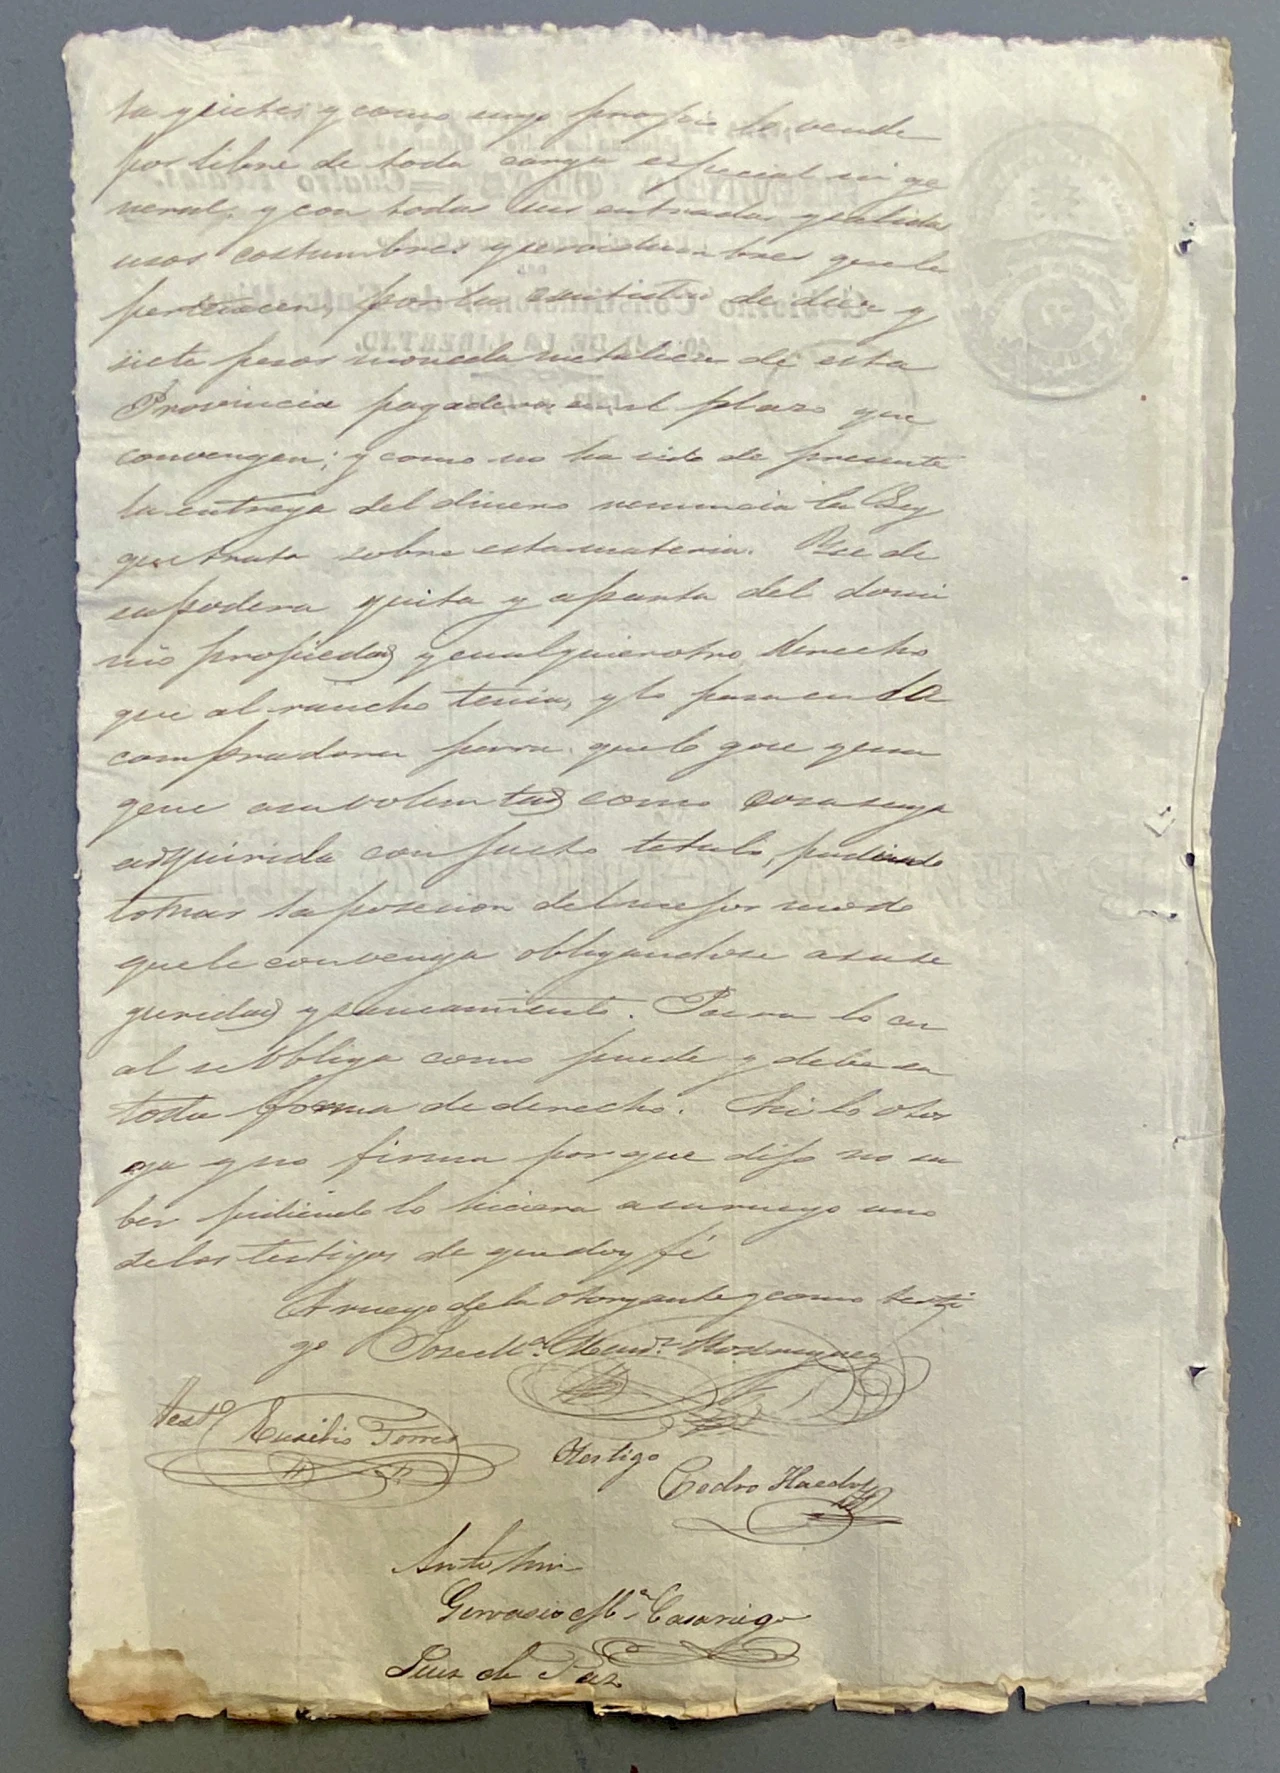 ta quieta; y como suyo propio lo vende
por libre de toda carga especial ni ge
neral, y con todas sus entradas y salidas
usos costumbres y servidumbres que le
pertenecen, por la cantidad de diez y
siete pesos moneda metalica de esta
Provincia pagaderos en el plazo que
convengan; y como no ha sido de presente
la entrega del dinero renuncia la Ley
que trata sobre esta materia. Que de
sapodera quita y aparta del domi
nio propiedad y cualquier otro derecho
que al rancho tenia, y lo pasa en la
compradora para que lo goce y ena
gene a su voluntad como cosa suya
adquirida con justo titulo, pudiendo
tomar la posecion del mejor modo
que le convenga obligandose a su se
guridad y saneamiento. Para lo cu
al se obliga como puede y debe en
toda forma de derecho. Asi lo otor
ga y no firma por que dijo no sa
ber pidiendo lo hiciera a su ruego uno
de los testigos de que doy fé
A ruego de la otorgante y como testi
go Jose Ma. Rodriguez
testo Eusebio Torres
Testigo
Pedro Haedo
Ante mi
Gervasio Ma. Casariego
Juez de Paz